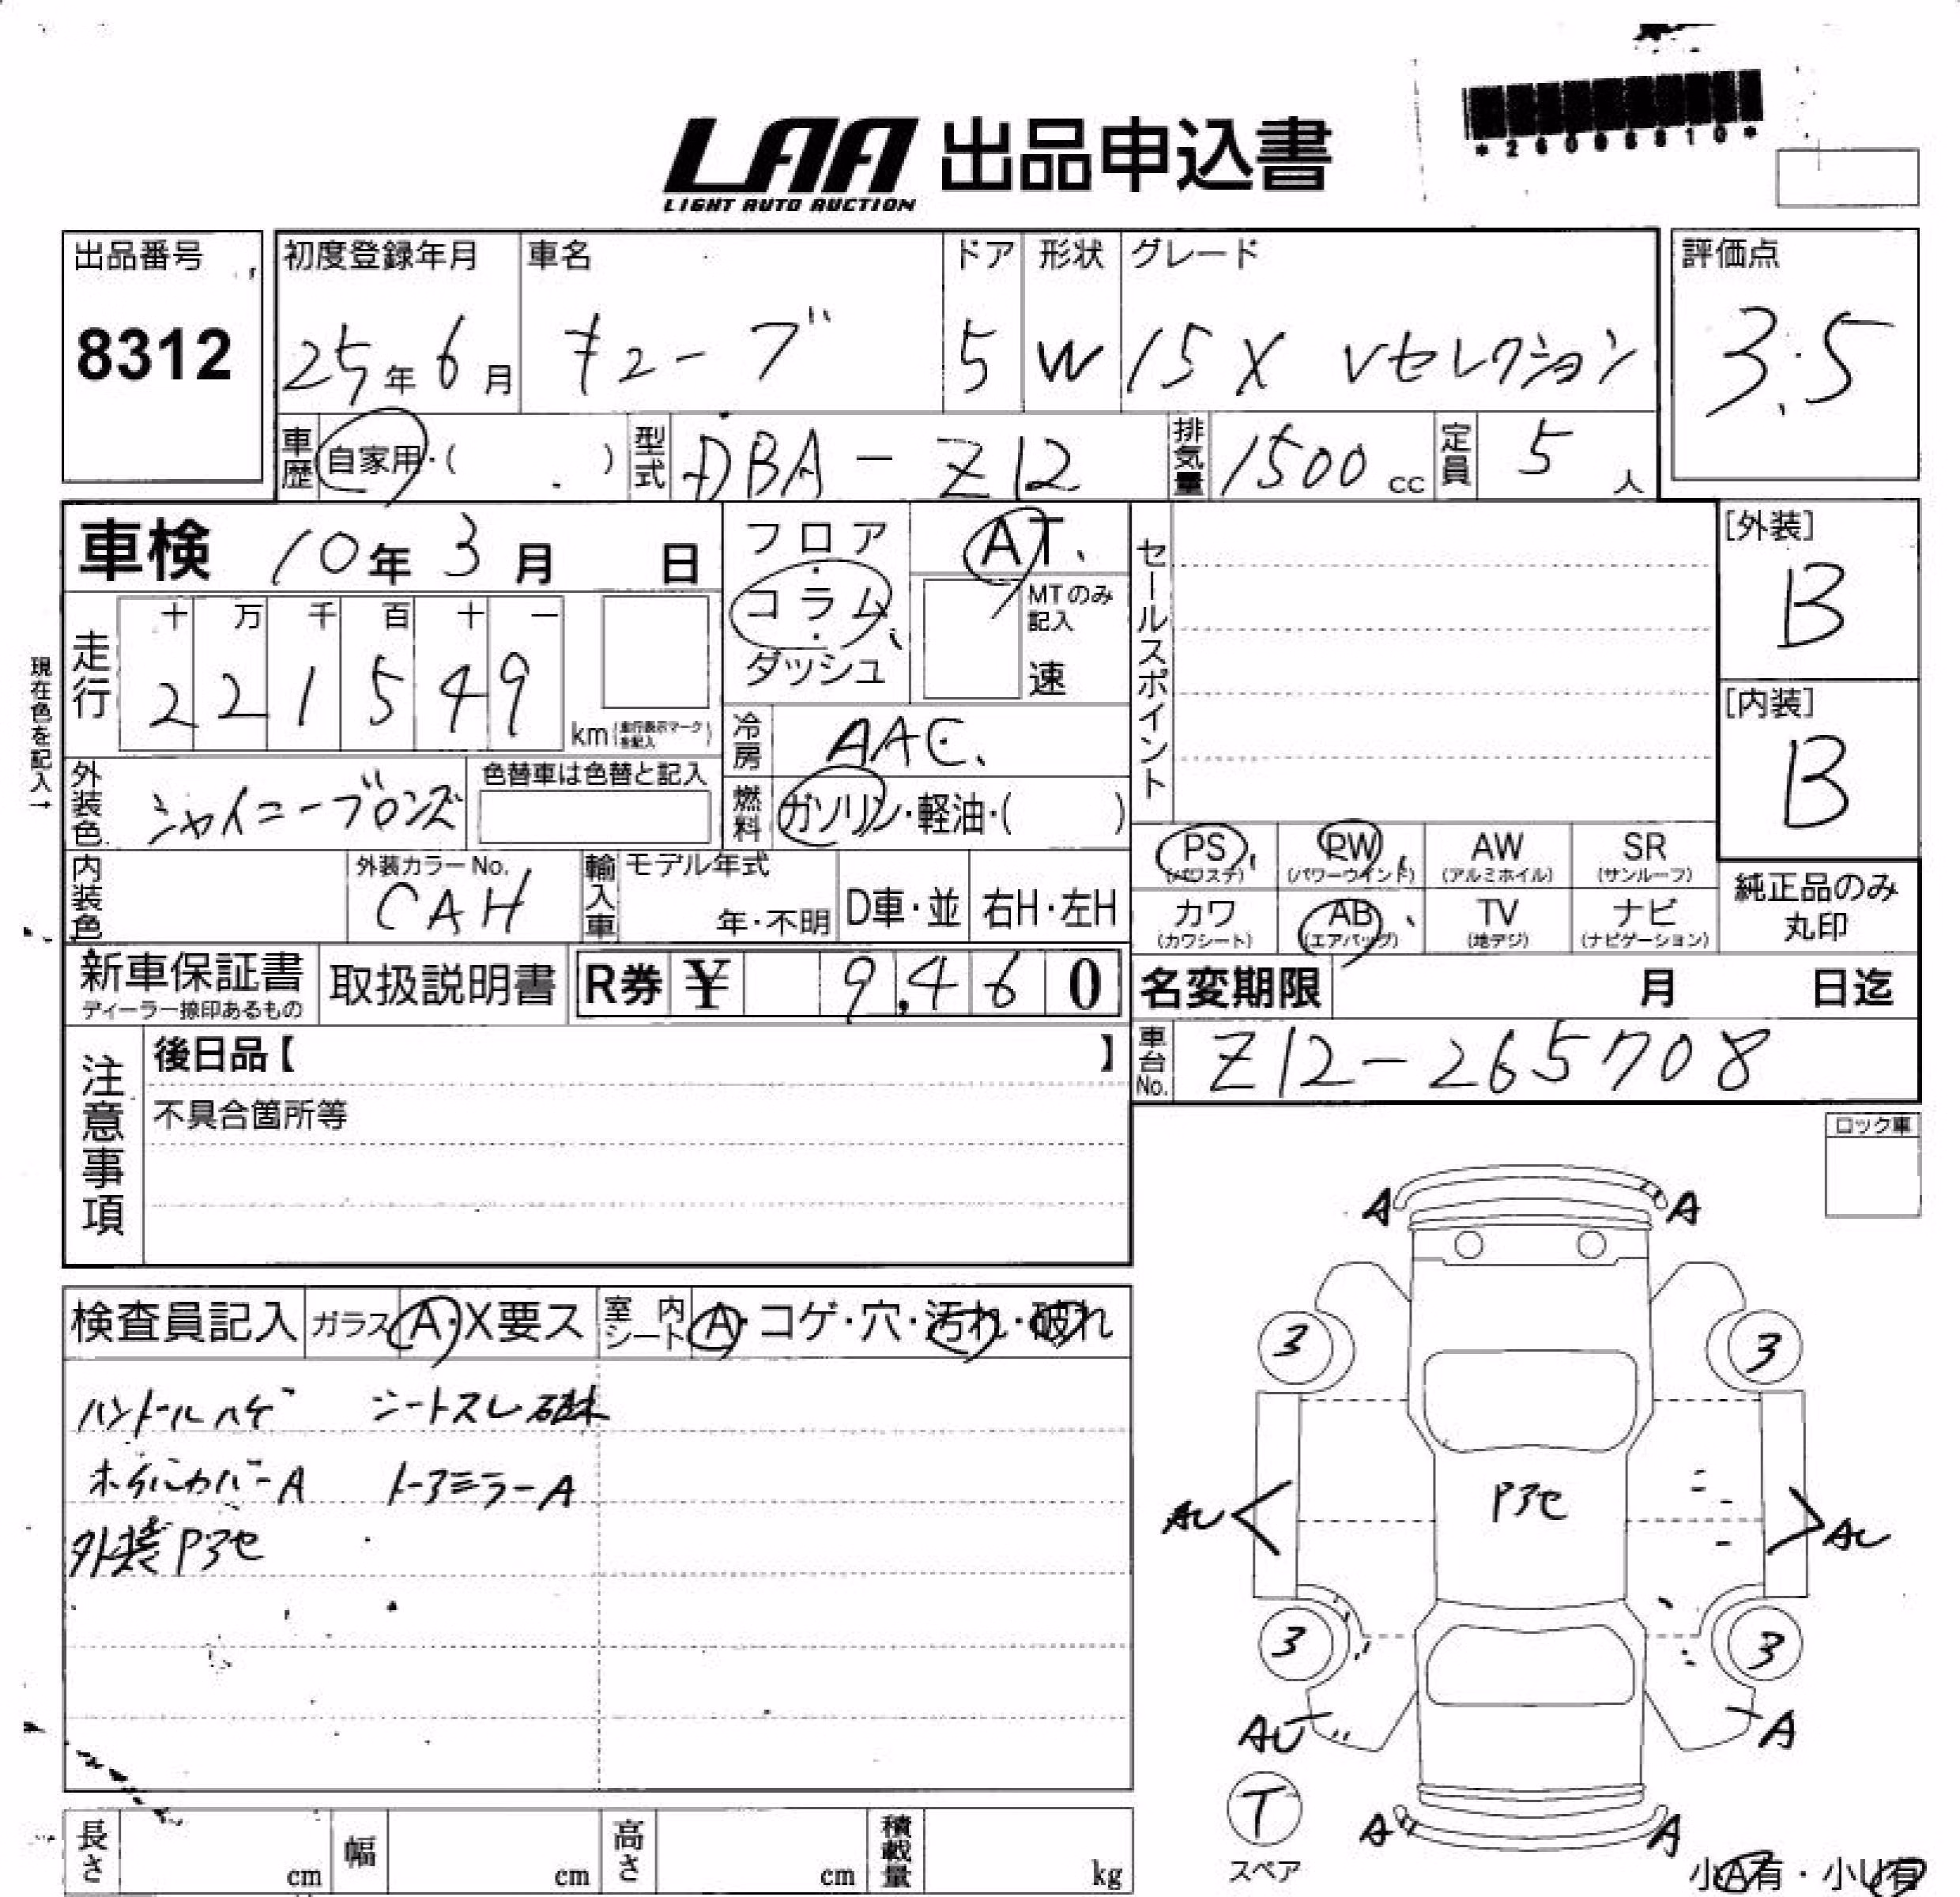 *26096810*
LAA 出品申込書
LIGHT AUTO AUCTION
出品番号
8312
初度登録年月
25年6月
車名
キューブ
ドア
5
形状
W
グレード
15X Vセレクション
評価点
3.5
車歴 自家用・( )
型式 DBA-Z12
排気量 1500 cc
定員 5 人
車検 10年 3月 日
フロア・コラム・ダッシュ
AT
MTのみ記入
速
セールスポイント
[外装]
B
[内装]
B
現在色を記入→
走行
十 万 千 百 十 一
2 2 1 5 4 9
km (走行表示マークを記入)
冷房 AAC
燃料 ガソリン・軽油・( )
外装色 シャイニーブロンズ
色替車は色替と記入
内装色
外装カラーNo.
CAH
輸入車
モデル年式
年・不明
D車・並
右H・左H
PS (パワステ)
PW (パワーウインド)
AW (アルミホイル)
SR (サンルーフ)
カワ (カワシート)
AB (エアバッグ)
TV (地デジ)
ナビ (ナビゲーション)
純正品のみ丸印
新車保証書
ディーラー捺印あるもの
取扱説明書
R券 ¥ 9,460
名変期限 月 日迄
車台No. Z12-265708
注意事項
後日品【 】
不具合箇所等
ロック車
検査員記入
ガラス A・X要ス
室内シート A・コゲ・穴・汚れ・破れ
ハンドルハゲ シートスレ破れ
ホイルカバーA ドアミラーA
外装Pアセ
A A
3 3
AU Pアセ AU
3 3
AU A
T
スペア
A A
小A有・小U有
長さ cm
幅 cm
高さ cm
積載量 kg